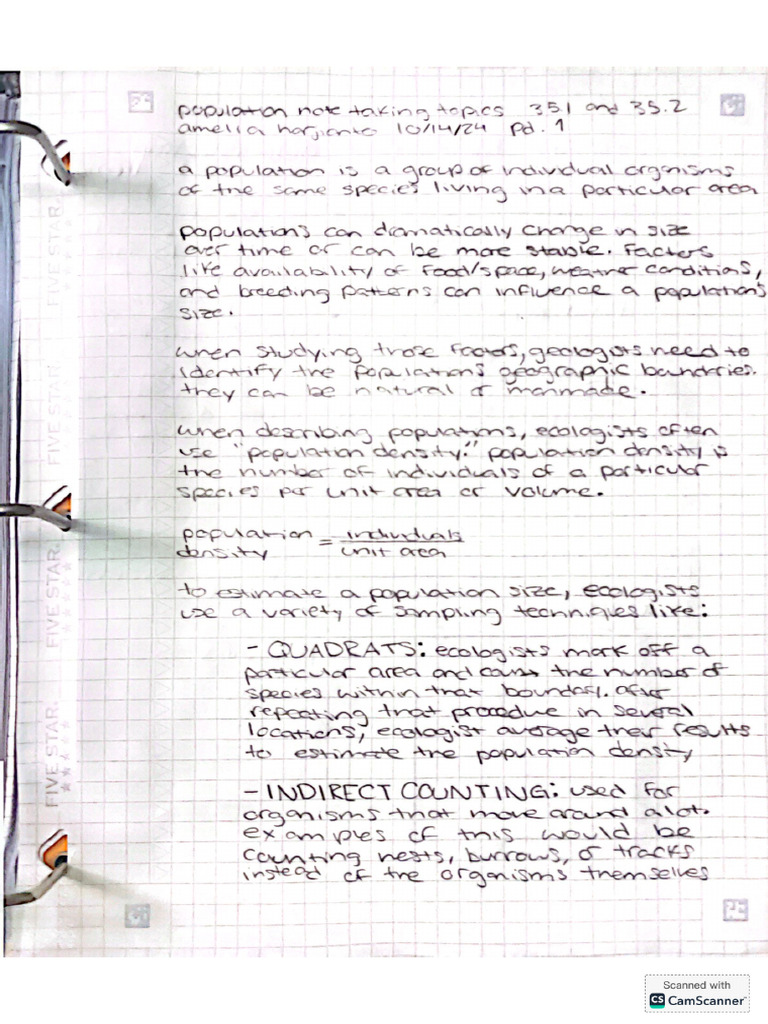 population note taking topics 35.1 and 35.2
amelia 10/14/24 pd. 1
a population is a group of individual organisms
of the same species living in a particular area
populations can dramatically change in size
over time or can be more stable. Factors
like availability of food/space, weather conditions,
and breeding patterns can influence a population's
size.
when studying those factors, geologists need to
identify the population's geographic boundries.
they can be natural or manmade.
when describing populations, ecologists often
use "population density." population density is
the number of individuals of a particular
species per unit area or volume.
population = individuals
density unit area
to estimate a population size, ecologists
use a variety of sampling techniques like:
- QUADRATS: ecologists mark off a
particular area and count the number of
species within that boundary. after
repeating that procedure in several
locations, ecologist average their results
to estimate the population density
- INDIRECT COUNTING: used for
organisms that move around a lot.
examples of this would be
counting nests, burrows, or tracks
instead of the organisms themselves
FIVE STAR.
FIVE STAR.
FIVE STAR.
FIVE STAR.
Scanned with
CS CamScanner